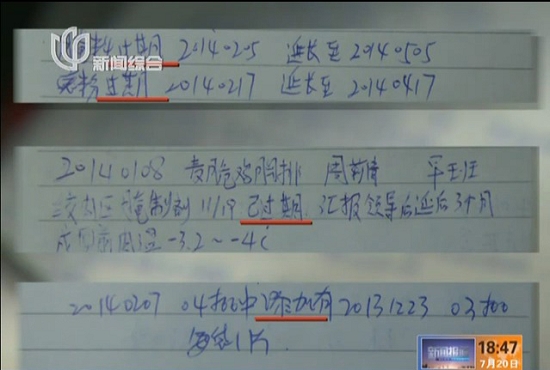 新闻综合
料过期 20140205 延长至 20140505
粉过期 20140217 延长至 20140417
20140108 麦脆鸡胸排 周
区腌制剂 11/19 已过期 汇报领导后延后3个月
温 -3.2~-4℃
20140207 04批中添加有 20131223 03批
1片
新闻报道
18:47
7月20日